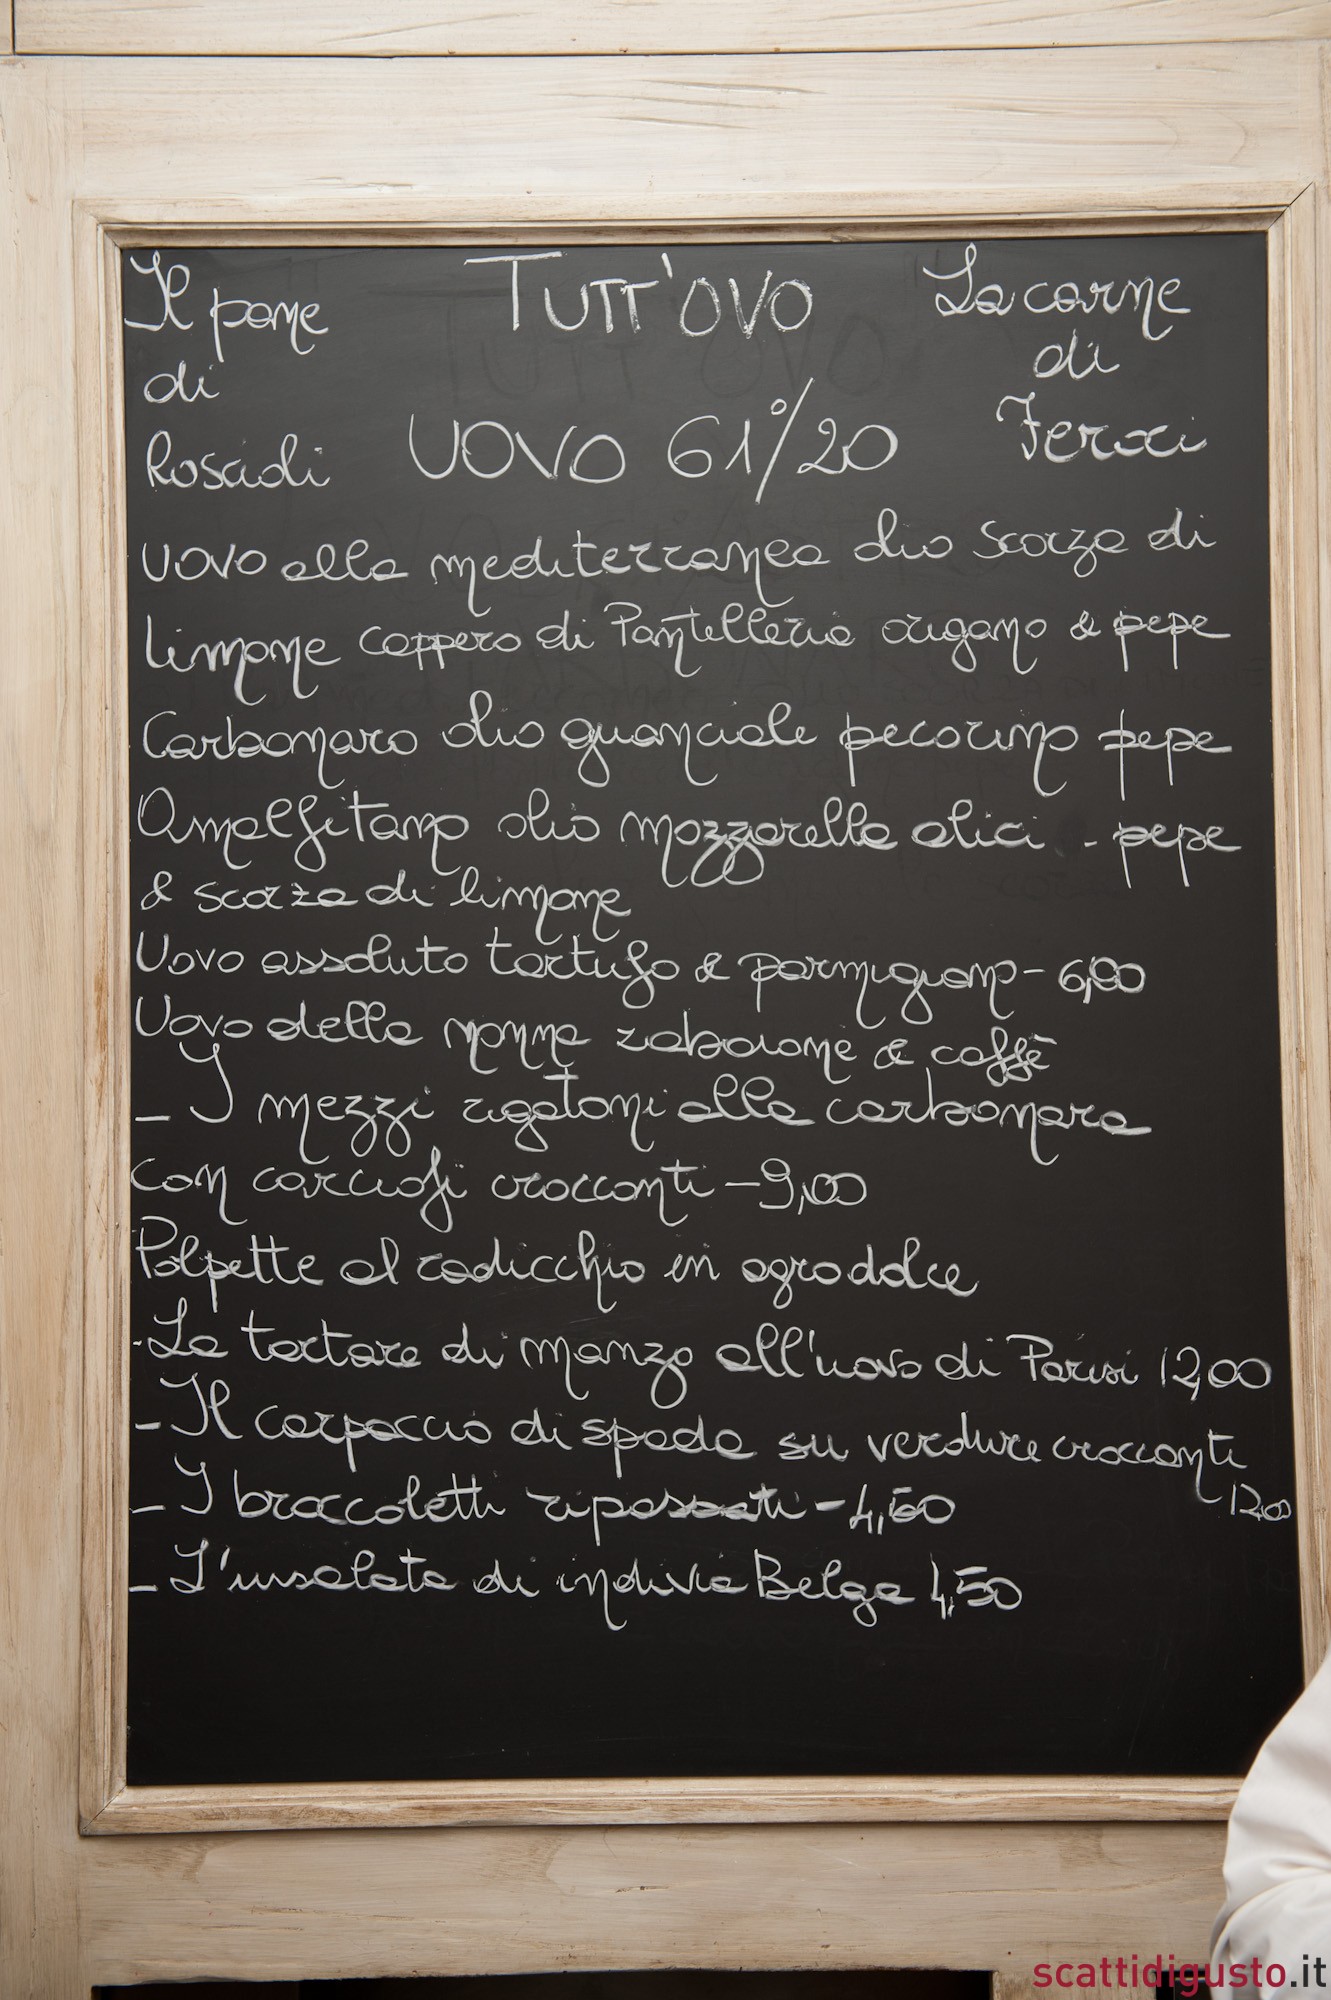 Il pane
di
Roscioli
TUTT'OVO
La carne
di
Feroci
UOVO 61°/20
Uovo alla mediterranea olio scorza di
Limone cappero di Pantelleria origano & pepe
Carbonaro olio guanciale pecorino pepe
Amalfitano olio mozzarella alici - pepe
& scorza di limone
Uovo assoluto tartufo & parmigiano - 6,00
Uovo della nonna zabaione & caffè
- I mezzi rigatoni alla carbonara
con carciofi croccanti - 9,00
Polpette al radicchio in agrodolce
- La tartare di manzo all'uovo di Parisi 12,00
- Il carpaccio di spada su verdure croccanti
12,00
- I broccoletti ripassati - 4,50
- L'insalata di indivia Belga 4,50
scattidigusto.it